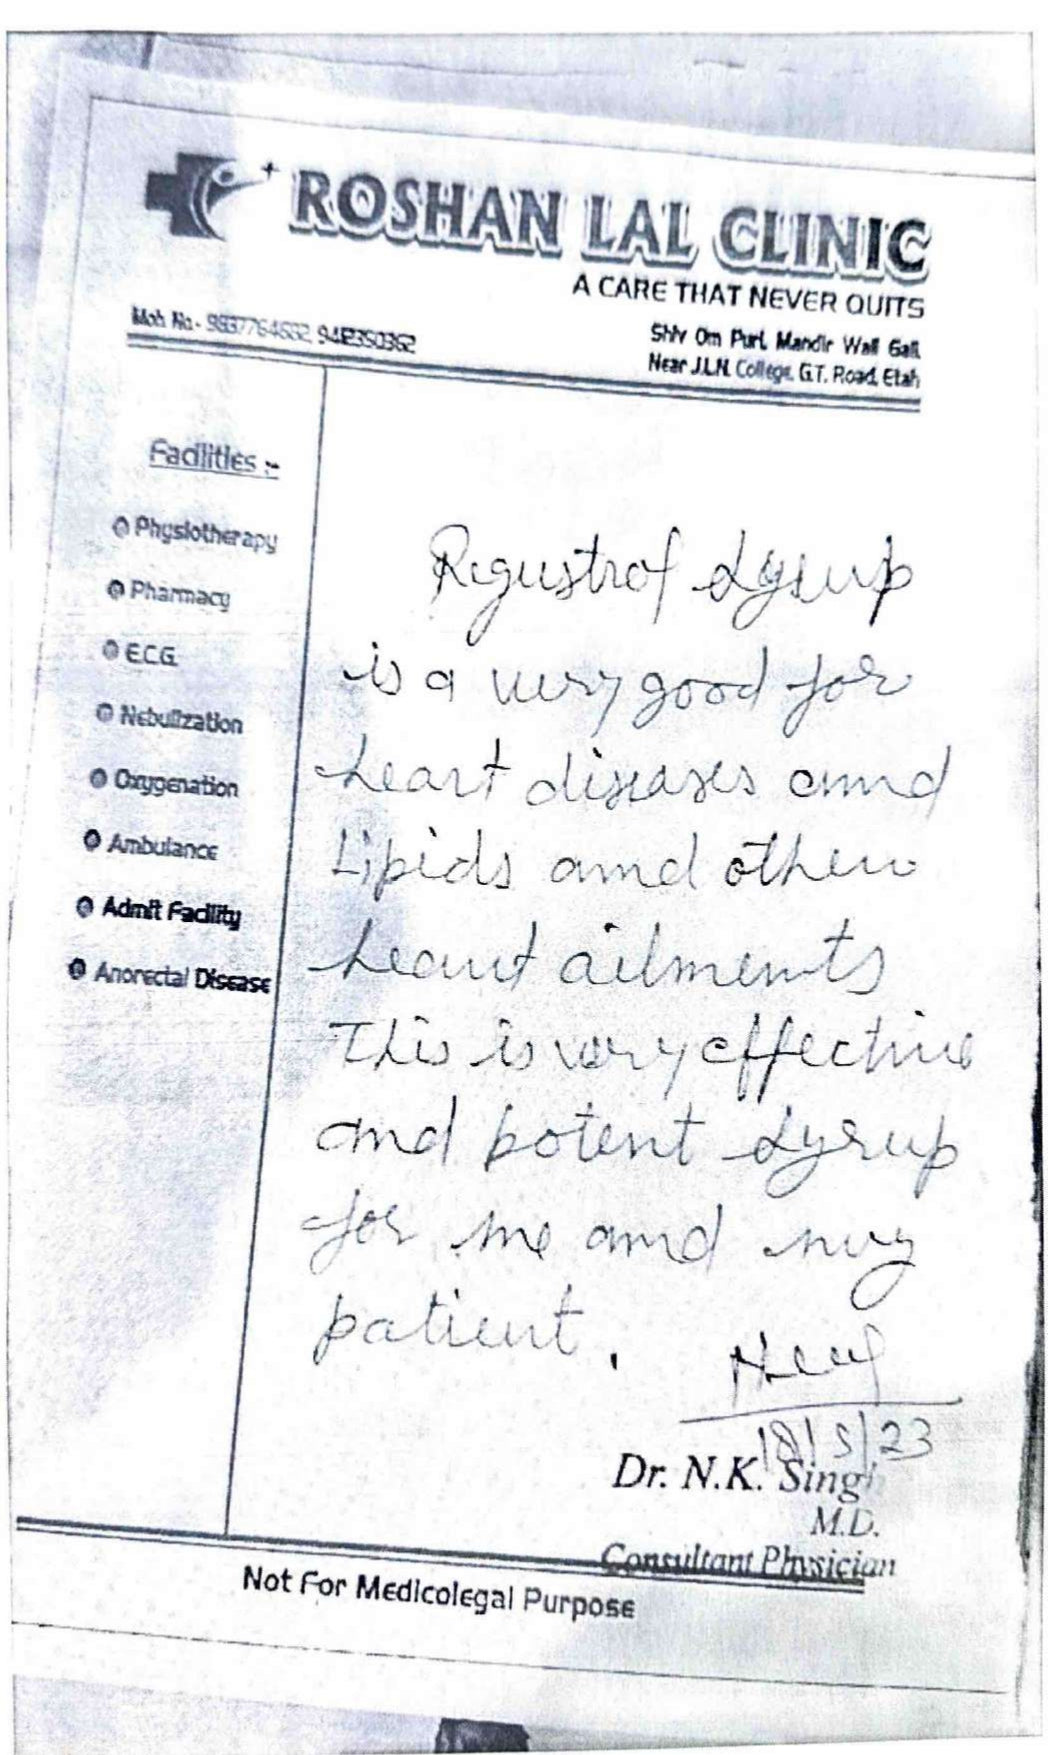 ROSHAN LAL CLINIC
A CARE THAT NEVER QUITS
Mob. No.- 9412350362
Shiv Om Puri, Mandir Wali Gali,
Near J.L.N. College, G.T. Road, Etah
Facilities :-
Physiotherapy
Pharmacy
E.C.G.
Nebulization
Oxygenation
Ambulance
Admit Facility
Anorectal Disease
Syrup
is a very good for
heart diseases and
Lipids and other
heart ailments
This is very effective
and potent Syrup
for me and my
patient.
18/5/23
Dr. N.K. Singh
M.D.
Consultant Physician
Not For Medicolegal Purpose